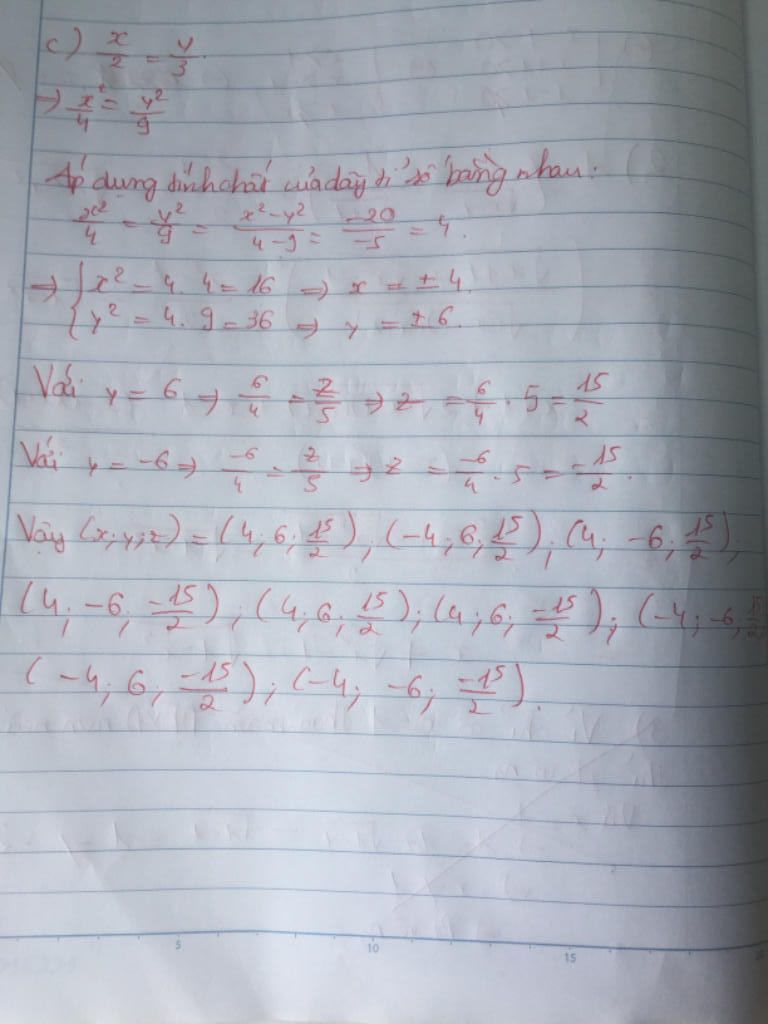 c) x/2 = y/3.
→ x²/4 = y²/9
Áp dụng tính chất của dãy tỉ số bằng nhau:
x²/4 = y²/9 = (x² - y²)/(4 - 9) = -20/-5 = 4.
⇒ { x² = 4. 4 = 16 ⇒ x = ± 4.
{ y² = 4. 9 = 36 ⇒ y = ± 6.
Với y = 6 ⇒ 6/4 = z/5 ⇒ z = 6/4 . 5 = 15/2
Với y = -6 ⇒ -6/4 = z/5 ⇒ z = -6/4 . 5 = -15/2.
Vậy (x; y; z) = (4; 6; 15/2); (-4; 6; 15/2); (4; -6; 15/2);
(4; -6; -15/2); (4; 6; 15/2); (4; 6; -15/2); (-4; -6; 15/2
(-4; 6; -15/2); (-4; -6; -15/2).
5 10 15 20